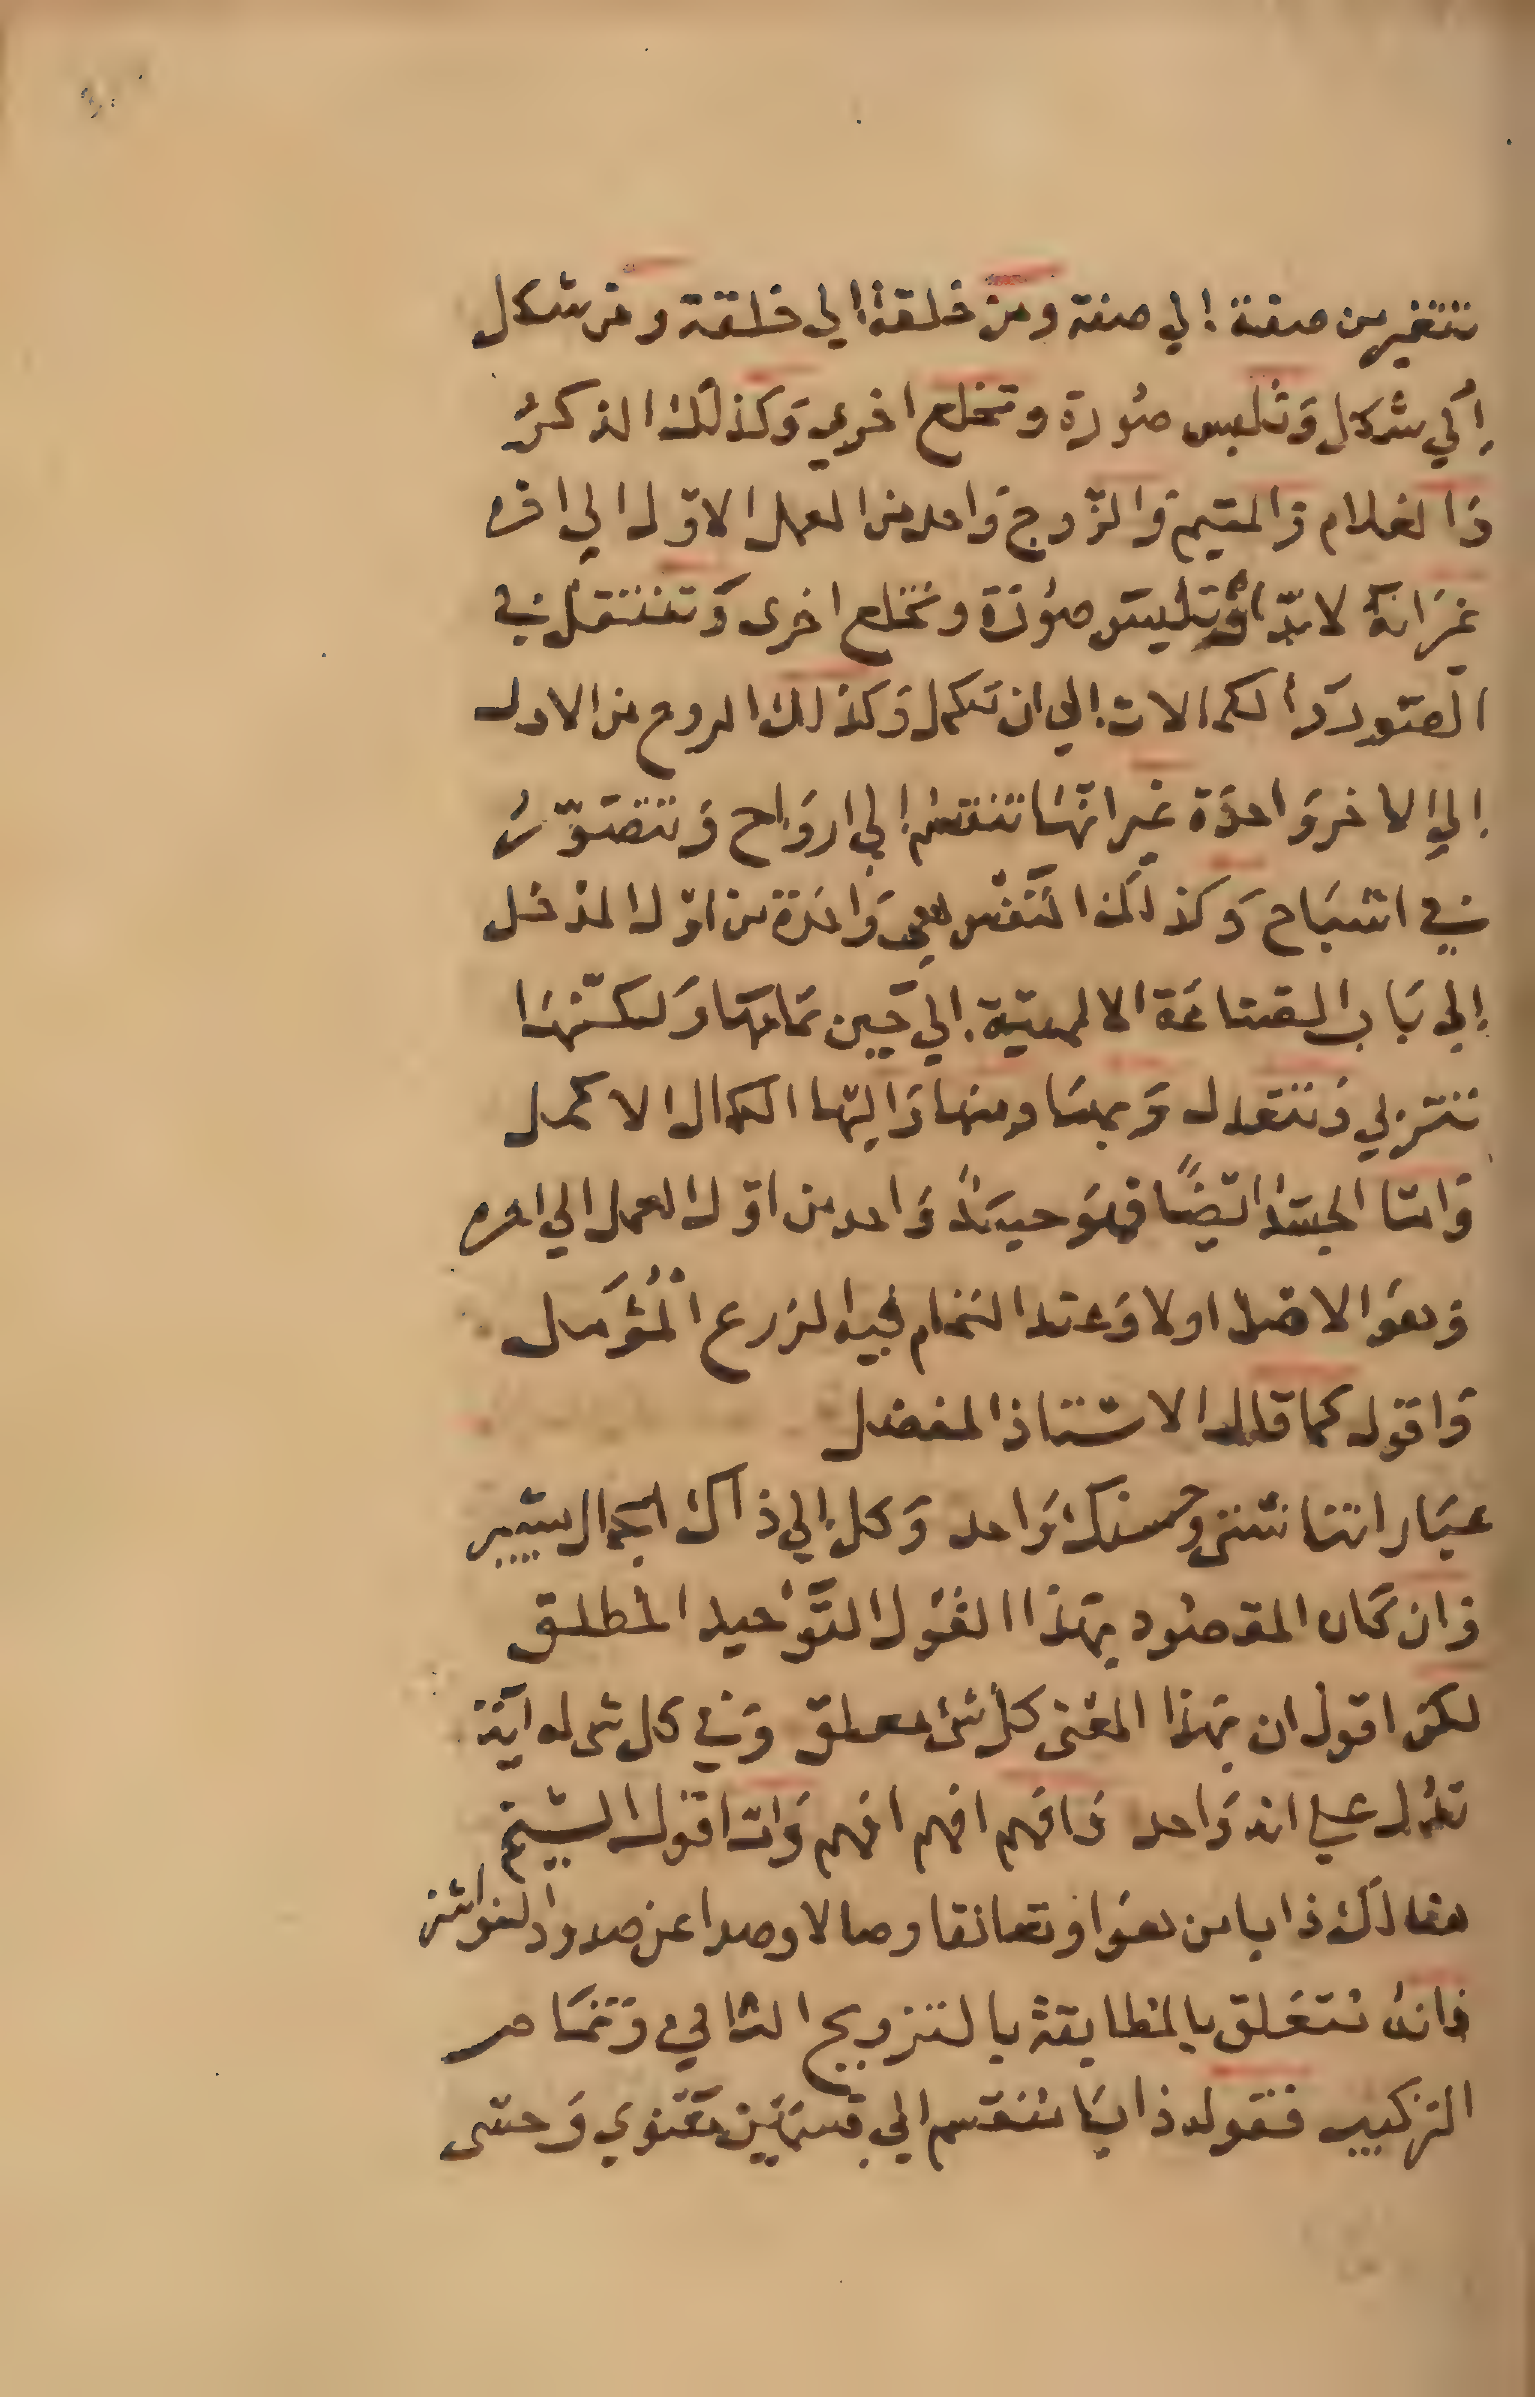 تتغير من صفة إلي صفة ومن خلقة إلي خلقة ومن شكل
إلَي شكل وَتلبس صُورة وتخلع اخري وَكذلك الذكرُ
وَالغلام وَالمتيم وَالزّوج وَاحد من العمل الاوّل الي اخره
غيرَ انهُ لابدّ اَن يَلبسَ صُورَة وَيخلع اخرى وَتنتقل في
الصّور وَالكمالات إلي ان تكمل وَكذلك الروح من الاول
إلي الاخر وَاحدَة غير انّهَا تنقسم إلي اروَاح وَتتصَوّرُ
في اشبَاح وَكذلكَ النّفس هي وَاحدَة من اوّل المدْخل
إلي بَاب الصّناعَة الالهيّة إلي حَين تمامهَا وَلكنّهَا
تترَبي وَتتعدل وَبهَا ومنها وَإليها الكمال الاكمل
وَامّا الجسَد ايضًا فهوَ جسَدٌ وَاحد من اوّل العمل الي اخره
وَهوَ الاصل اولا وَعند التمام فيه الزرع المُؤمل
وَاقول كما قال الاستاذ المفضل
عبَاراتنا شتى وحسنك وَاحد وَكل إلي ذاك الجمال يشير
وَان كان المقصُود بهَذا القوْل التَّوْحيد المطلق
لكن اقول ان بهَذا المعْنى كل شئ معلق وَفي كل شى له آية
تدُل علي انه وَاحد وَافهم افهم افهم وَان اقول الشيخ
هنالك ذابا من هوَا وتعانقا وصالا وصدا عن صدود النواشز
فانهُ تتعَلق بالمطابقة بالتزويج الثاني وَتمَام
التركيب فنقول ذابَا تنقسم إلي قسمَين مَعْنوي وَحسّى